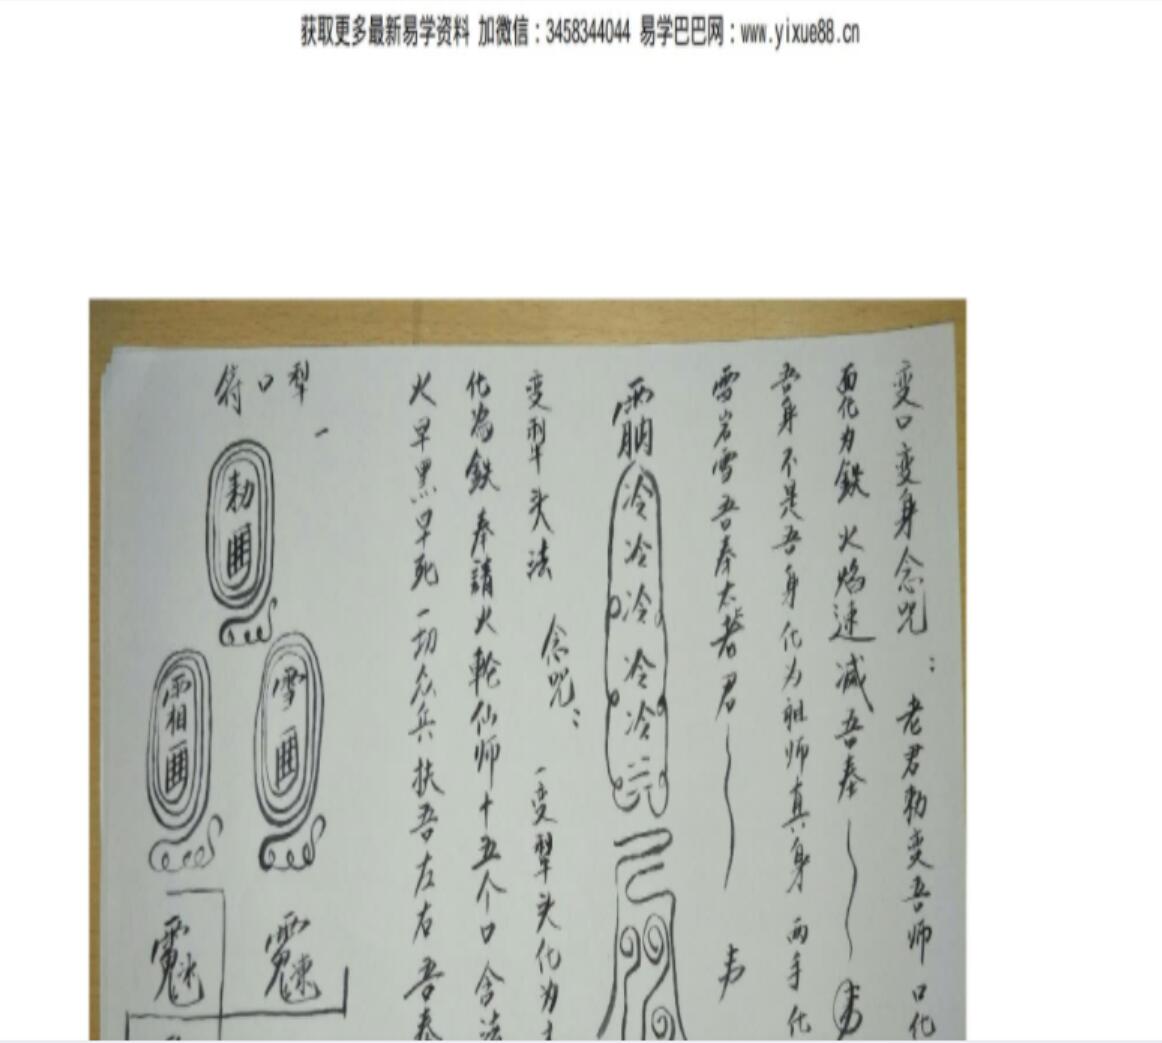 获取更多最新易学资料 加微信：3458344044 易学巴巴网：www.yixue88.cn
变口变身念咒：老君勅变吾师 口化
面化为鉄 火焰速减吾奉
吾身不是吾身 化为祖师真身 两手化
雪岩雪吾奉太老君
冷冷冷冷冷
变犁头法 念咒：一变犁头化为
化為鉄 奉請火輪仙师十五个口 含法
火早黑早死 一切众兵扶吾左右 吾奉
犁口符
勅
雪